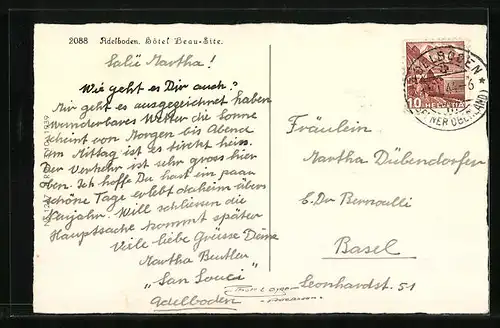 2088 Adelboden. Hôtel Beau-Site.
Salü Martha!
Wie geht es Dir auch?
Mir geht es ausgezeichnet haben
wunderbares Wetter die Sonne
scheint von Morgen bis Abend
am Mittag ist es direkt heiss.
Der Verkehr ist sehr gross hier
oben. Ich hoffe Du hast ein paar
schöne Tage erlebt daheim übers
Neujahr. Will schliessen die
Hauptsache kommt später
Viele liebe Grüsse Deine
Martha Beutler
"San Souci"
Adelboden
ADELBODEN
(BERNER OBERLAND)
10 HELVETIA
Fräulein
Martha Dübendorfer
b. Dr Bernoulli
Basel
Leonhardst. 51